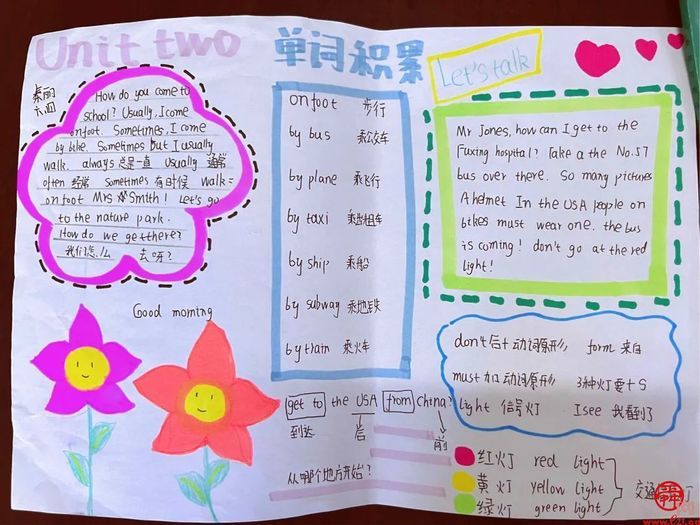 Unit two
单词积累
Let's talk
秦丽
六四
How do you come to
school? Usually, I come
onfoot. Sometimes, I come
by bike. Sometimes but I usually
walk. always 总是一直 usually 通常
often 经常 sometimes 有时候 walk=
onfoot Mrs Smith! Let's go
to the nature park.
How do we get there?
我们怎么 去呀?
Good morning
on foot 步行
by bus 乘公交车
by plane 乘飞行
by taxi 乘出租车
by ship 乘船
by subway 乘地铁
by train 乘火车
get to the USA from China?
到达 后 前
从哪个地方开始?
Mr Jones, how can I get to the
Fuxing hospital? Take a the No.57
bus over there. So many pictures
A helmet In the USA people on
bikes must wear one. the bus
is coming! don't go at the red
light!
don't 后+动词原形, form 来自
must 加动词原形, 3种灯要+s
light 信号灯 I see 我看到了
红灯 red light
黄灯 yellow light
绿灯 green light
交通